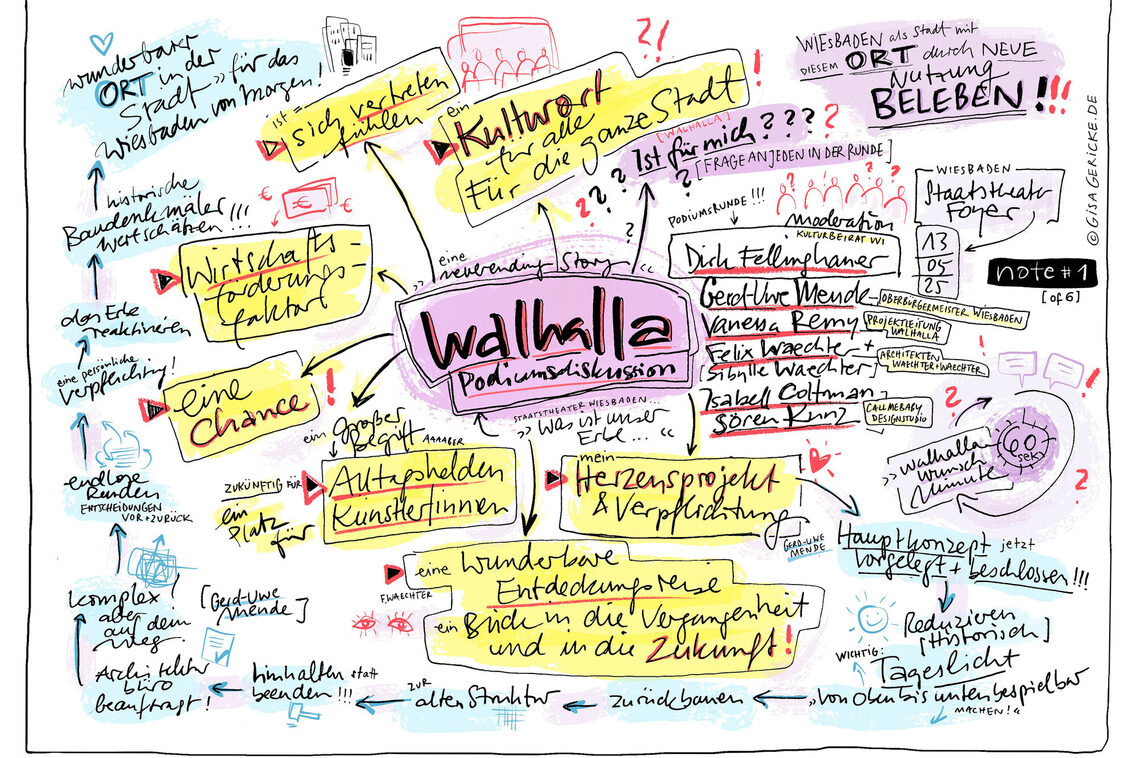 wunderbarer
ORT in der
Stadt" für das
Wiesbaden von morgen!
ist =
sich vertreten
fühlen
ein
Kulturort
für alle
Für die ganze Stadt
!
WIESBADEN als STADT mit
DIESEM ORT durch NEUE
NUTZUNG
BELEBEN!!!
[WALHALLA]
Ist für mich????
[FRAGE AN JEDEN IN DER RUNDE]
historische
Baudenkmäler
wertschätzen!!!
das Erbe
reaktivieren
eine persönliche
Verpflichtung!
endlose
Runden
ENTSCHEIDUNGEN
VOR + ZURÜCK
komplex!
aber
auf dem
Weg.
[Gerd-Uwe
Mende]
Architektur
büro
beauftragt!
Wirtschafts-
förderungs-
faktor
eine
Chance!
eine
"neverending Story"
walhalla
Podiumsdiskussion
STAATSTHEATER WIESBADEN...
"Was ist unser
Erbe..."
PODIUMSRUNDE!!!
moderation
KULTURBEIRAT WI
Dirk Fellinghauer
Gerd-Uwe Mende
OBERBÜRGERMEISTER WIESBADEN
Vanessa Remy
PROJEKTLEITUNG
WALHALLA
Felix Waechter +
Sibylle Waechter
ARCHITEKTEN
WAECHTER+WAECHTER
Isabell Coltman
Sören Kunz
CALLMEBABY
DESIGNSTUDIO
WIESBADEN
Staatstheater
Foyer
13
05
25
note #1
[of 6]
© GiSA GERICKE.DE
"walhalla
wunsch
Minute"
60
sek
ein großer
Begriff AAAABER
ZUKÜNFTIG FÜR
ein
Platz
für
Alltagshelden
Künstler!innen
mein
Herzensprojekt
& Verpflichtung
GERD-UWE
MENDE
Hauptkonzept jetzt
vorgelegt + beschlossen!!!
eine Wunderbare
Entdeckungsreise
F. WAECHTER
ein Blick in die Vergangenheit
und in die Zukunft!
Reduzieren
[Historisch]
WICHTIG:
Tageslicht
"von Oben bis unten bespielbar
MACHEN!"
zurückbauen
ZUR
alten Struktur
hinhalten statt
beenden!!!